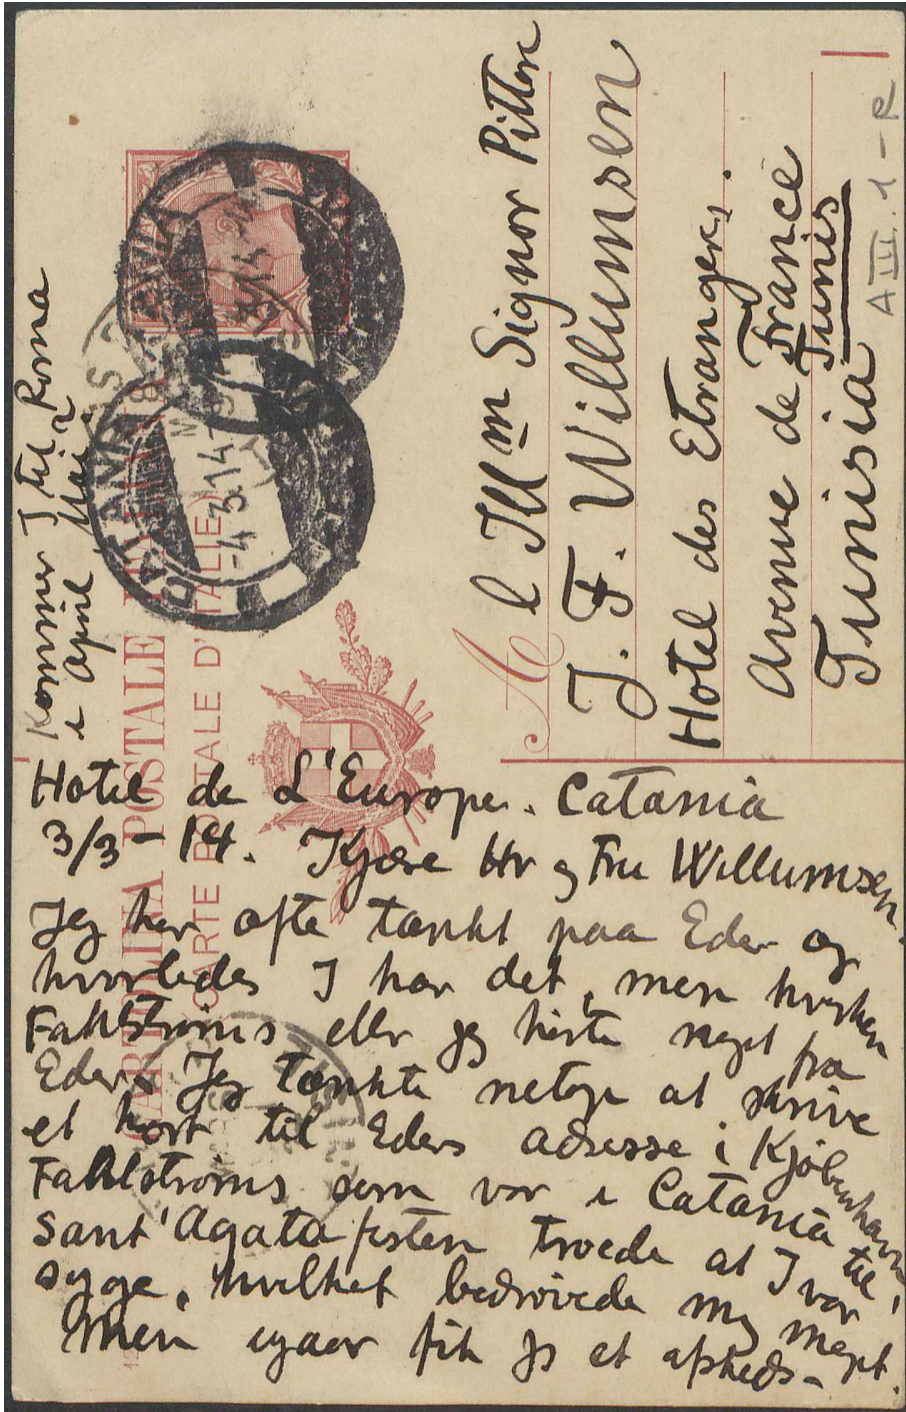 Kommer I til Roma
i April Mai?
CARTOLINA POSTALE ITALIANA
(CARTE POSTALE D'ITALIE)
CATANIA
-4.3.14-
A
l Illm Signor Pittore
J. F. Willumsen
Hotel des Etrangers.
Avenue de France
Tunis
Tunisia
A III. 1 - R
Hotel de L'Europe. Catania
3/3-14. Kjære Hr og Fru Willumsen.
Jeg har ofte tænkt paa Eder og
hvorledes I har det, men hverken
Fahlstrøms eller jeg hørte noget fra
Eder. Jeg tænkte netop at skrive
et kort til Eders adresse i Kjøbenhavn,
Fahlstrøms som var i Catania til
Sant'Agata festen troede at I var
syge, hvilket bedrøvede mig meget.
Men igaar fik jeg et afskeds-